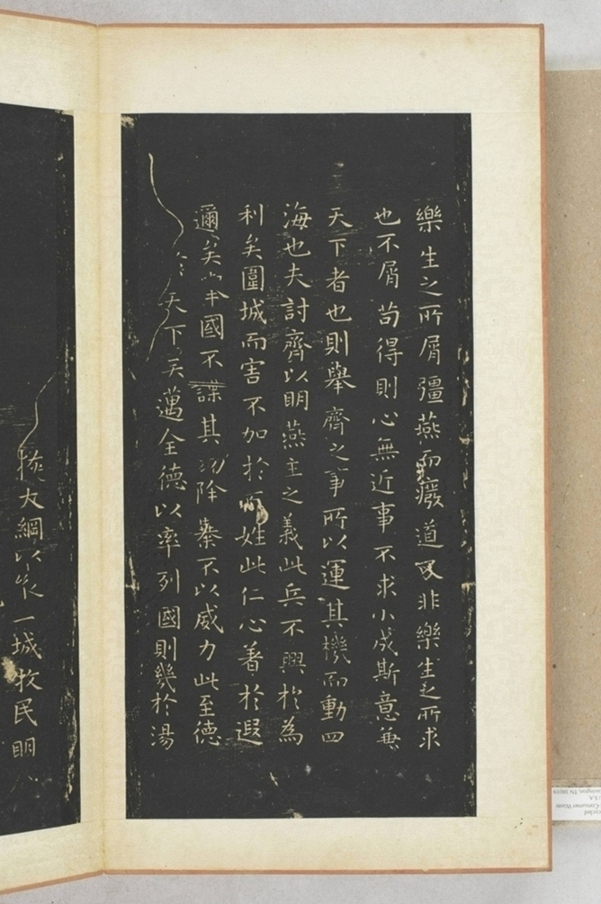 樂生之所屑彊燕而癈道又非樂生之所求
也不屑苟得則心無近事不求小成斯意兼
天下者也則舉齊之事所以運其機而動四
海也夫討齊以明燕主之義此兵不興於為
利矣圍城而害不加於百姓此仁心著於遐
邇矣國不謀其功除暴不以威力此至德
於天下矣邁全德以率列國則幾於湯
大綱以城牧民明
Consumer Waste